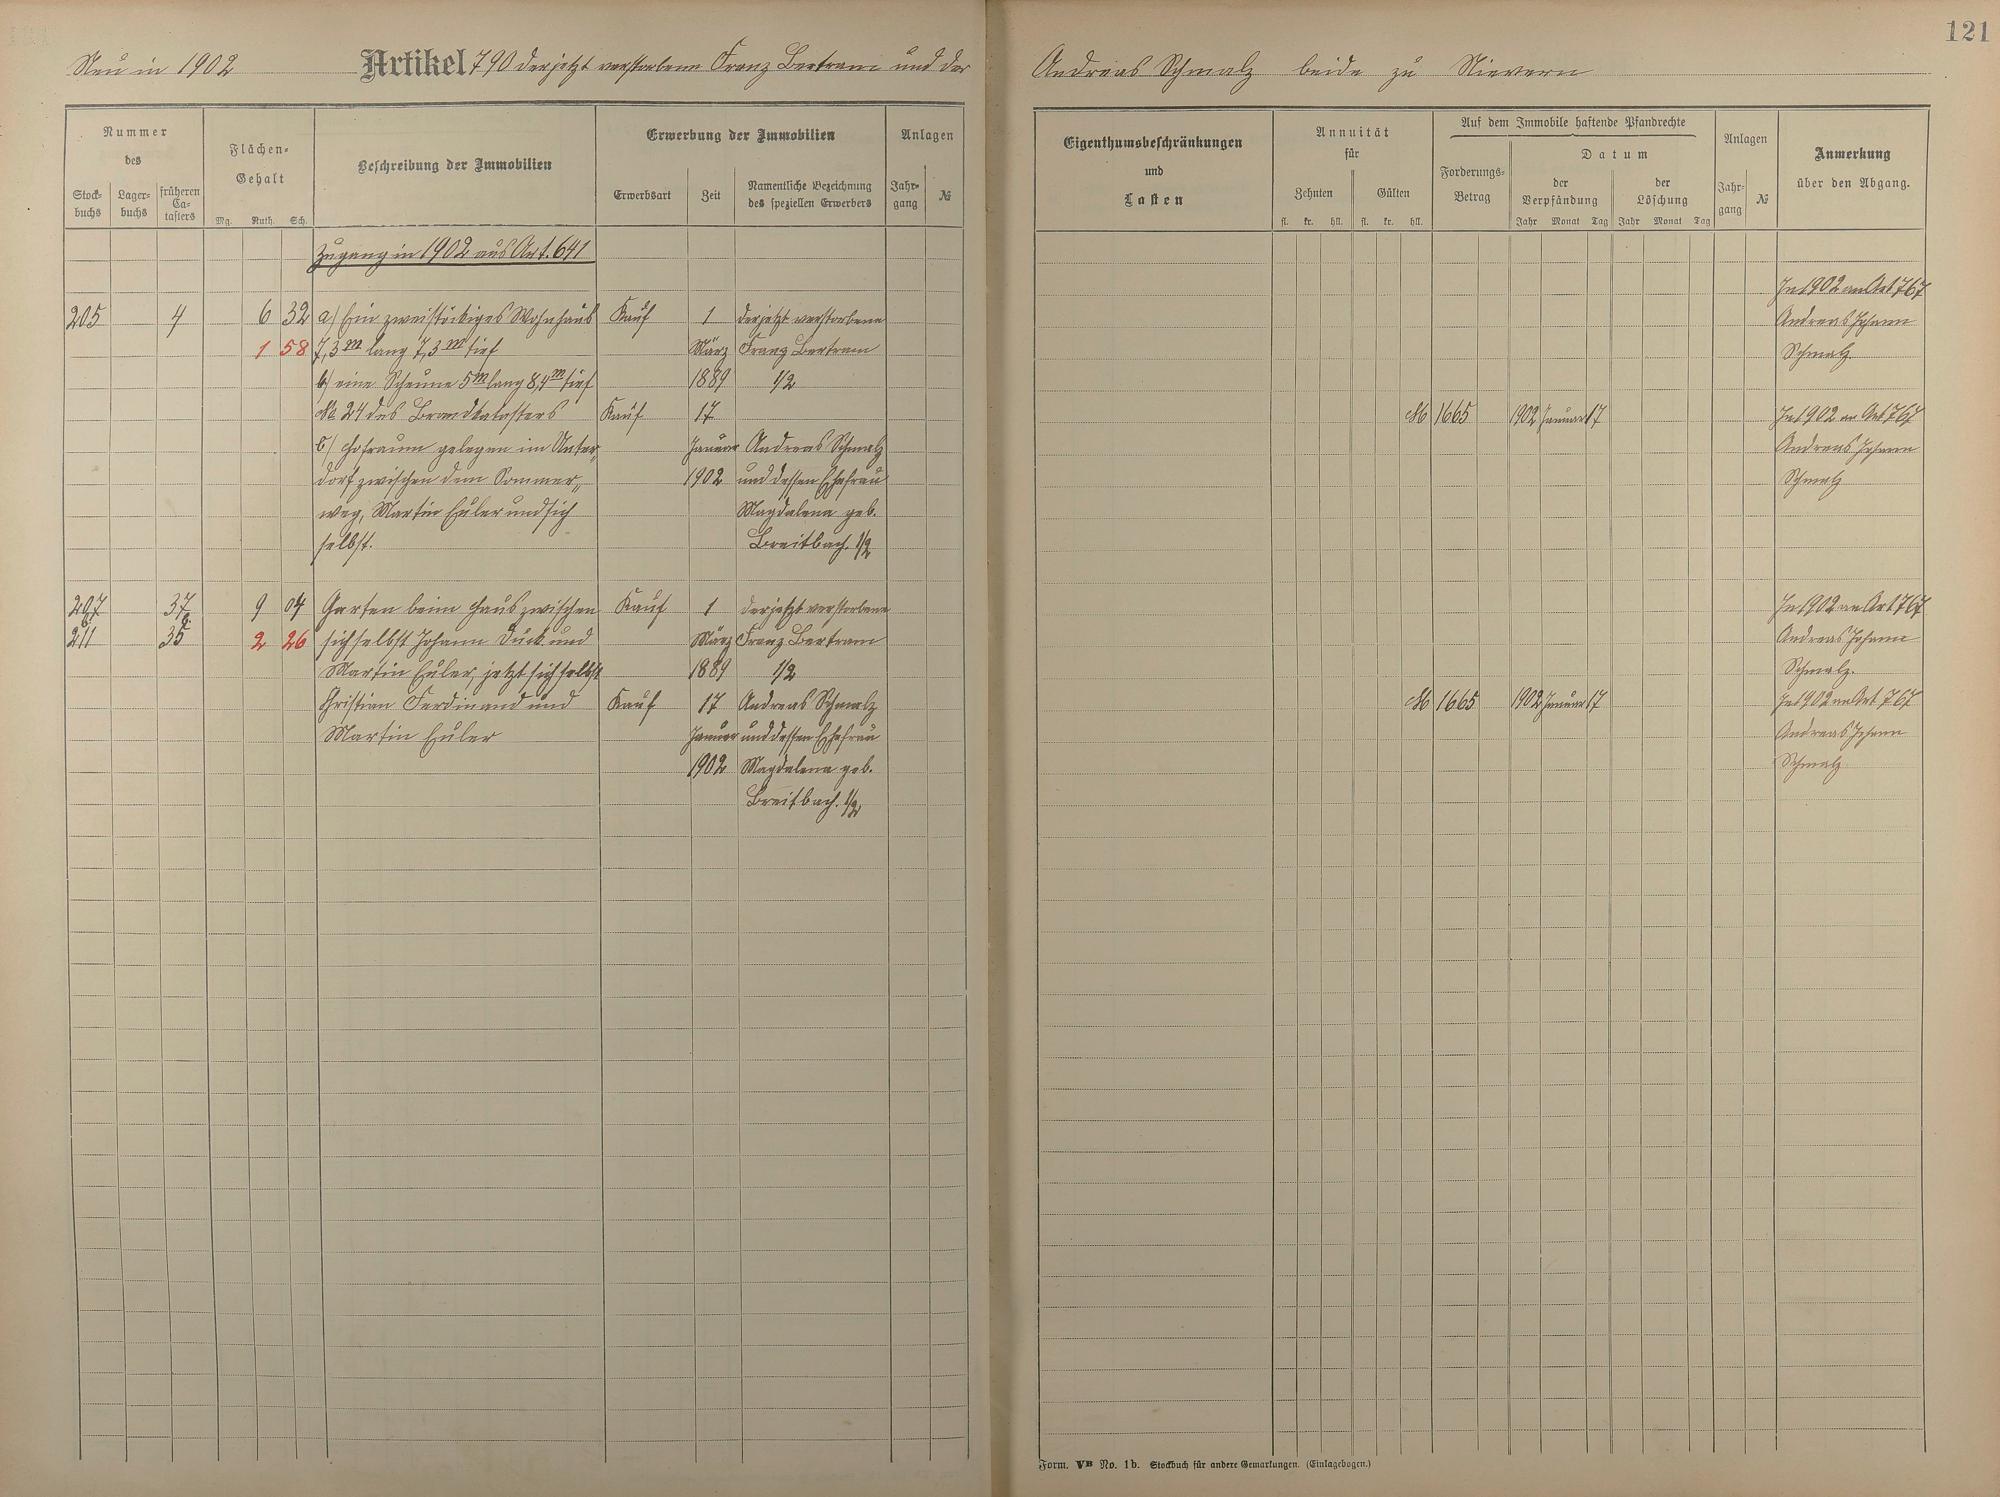 121
Neu in 1902 Artikel 790 der jetzt verstorbene Franz Bertram und der
Andreas Schmalz beide zu Nievern
Nummer
des
Stock-
buchs
Lager-
buchs
früheren
Ca-
tasters
Flächen-
Gehalt
Mg. Ruth. Sch.
Beschreibung der Immobilien
Erwerbung der Immobilien
Erwerbsart
Zeit
Namentliche Bezeichnung
des speziellen Erwerbers
Anlagen
Jahr-
gang
№
Zugang in 1902 aus Art. 641
205 4 6 32 a) Ein zweistöckiges Wohnhaus Kauf 1 der jetzt verstorbene
1 58 7,3 m lang 7,3 m tief März Franz Bertram
b) eine Scheune 5 m lang 8,4 m tief 1889 1/2
№ 24 des Brandkatasters Kauf 17
b) Hofraum gelegen im Unter- Januar Andreas Schmalz
dorf zwischen dem Sommer- 1902 und dessen Ehefrau
weg, Martin Euler und sich Magdalena geb.
selbst. Breitbach. 1/2
207 37 9 04 Garten beim Haus zwischen Kauf 1 der jetzt verstorbene
211 35 2 26 sich selbst Johann Dück und März Franz Bertram
Martin Euler, jetzt sich selbst 1889 1/2
Christian Ferdinand und Kauf 17 Andreas Schmalz
Martin Euler Januar und dessen Ehefrau
1902 Magdalena geb.
Breitbach. 1/2
Eigenthumsbeschränkungen
und
Lasten
Annuität
für
Zehnten
Gülten
fl. kr. hll. fl. kr. hll.
Auf dem Immobile haftende Pfandrechte
Forderungs-
Betrag
Datum
der
Verpfändung
der
Löschung
Jahr Monat Tag Jahr Monat Tag
Anlagen
Jahr-
gang
№
Anmerkung
über den Abgang.
In 1902 an Art 767
Andreas Johann
Schmalz.
M 1665 1902 Januar 17 In 1902 an Art 767
Andreas Johann
Schmalz
In 1902 an Art 767
Andreas Johann
Schmalz.
M 1665 1902 Januar 17 In 1902 an Art 767
Andreas Johann
Schmalz
Form. VB No. 1b. Stockbuch für andere Gemarkungen. (Einlagebogen.)